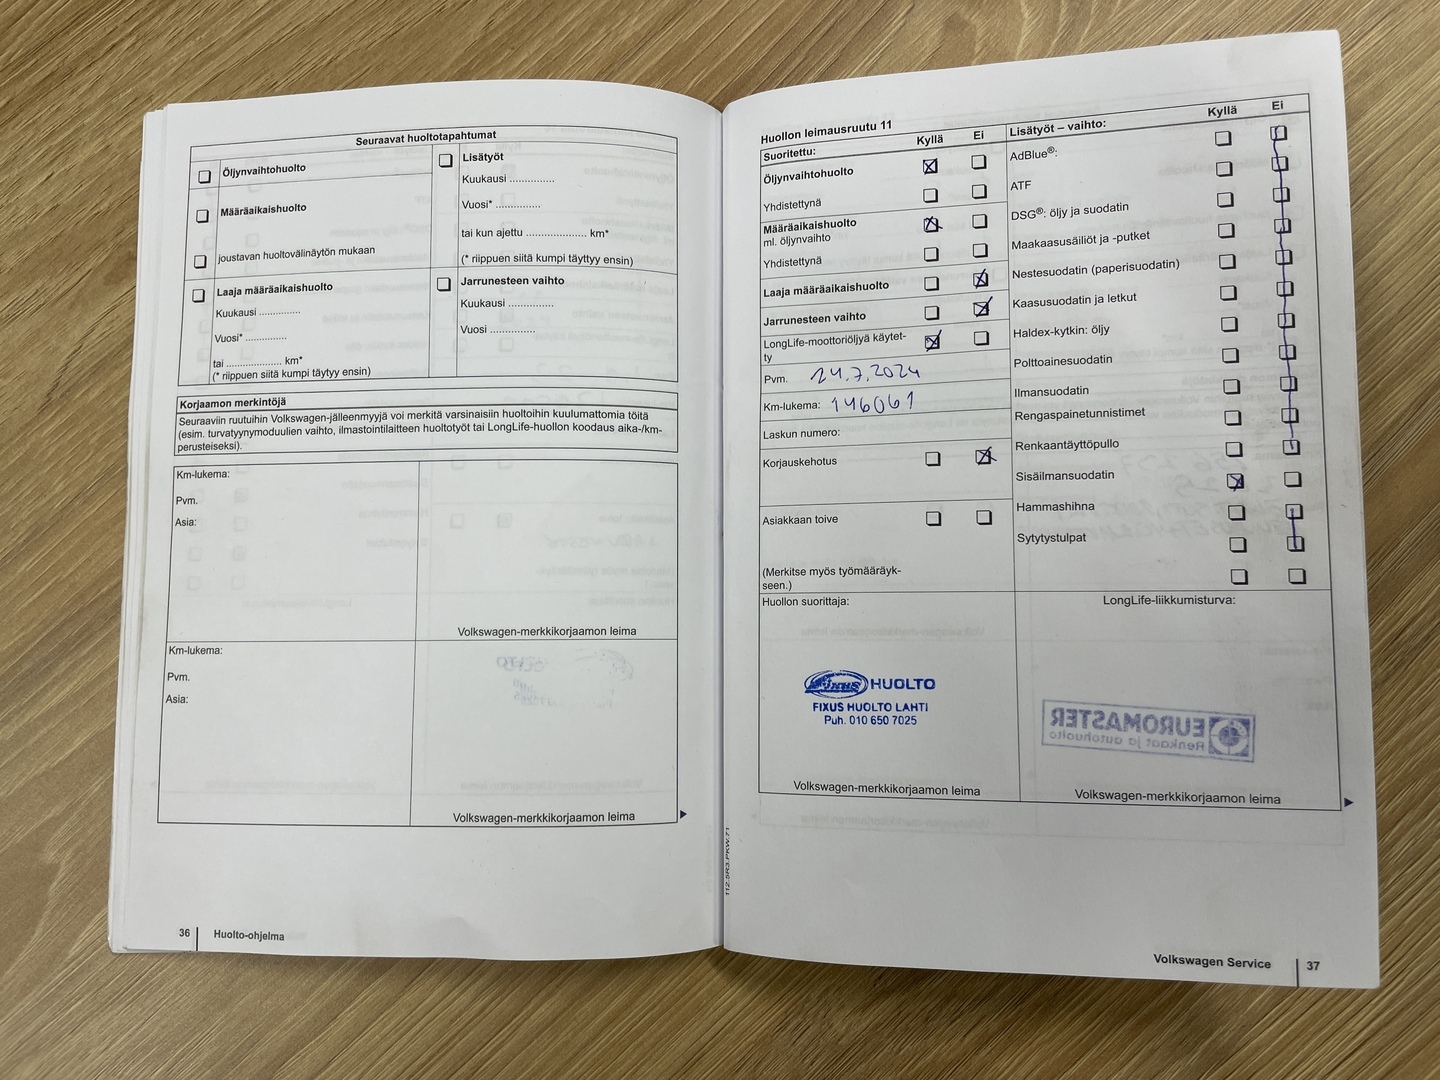 Seuraavat huoltotapahtumat
Öljynvaihtohuolto
Määräaikaishuolto
joustavan huoltovälinäytön mukaan
Laaja määräaikaishuolto
Kuukausi ..............
Vuosi* ..............
tai ................... km*
(* riippuen siitä kumpi täytyy ensin)
Lisätyöt
Kuukausi ...............
Vuosi* ...............
tai kun ajettu .................... km*
(* riippuen siitä kumpi täyttyy ensin)
Jarrunesteen vaihto
Kuukausi ...............
Vuosi ...............
Korjaamon merkintöjä
Seuraaviin ruutuihin Volkswagen-jälleenmyyjä voi merkitä varsinaisiin huoltoihin kuulumattomia töitä
(esim. turvatyynymoduulien vaihto, ilmastointilaitteen huoltotyöt tai LongLife-huollon koodaus aika-/km-
perusteiseksi).
Km-lukema:
Pvm.
Asia:
Volkswagen-merkkikorjaamon leima
Km-lukema:
Pvm.
Asia:
Volkswagen-merkkikorjaamon leima
36
Huolto-ohjelma
Huollon leimausruutu 11
Suoritettu:
Kyllä
Ei
Öljynvaihtohuolto
Yhdistettynä
Määräaikaishuolto
ml. öljynvaihto
Yhdistettynä
Laaja määräaikaishuolto
Jarrunesteen vaihto
LongLife-moottoriöljyä käytet-
ty
Pvm. 24.7.2024
Km-lukema: 146061
Laskun numero:
Korjauskehotus
Asiakkaan toive
(Merkitse myös työmääräyk-
seen.)
Huollon suorittaja:
FIXUS HUOLTO
FIXUS HUOLTO LAHTI
Puh. 010 650 7025
Volkswagen-merkkikorjaamon leima
Lisätyöt – vaihto:
Kyllä
Ei
AdBlue®:
ATF
DSG®: öljy ja suodatin
Maakaasusäiliöt ja -putket
Nestesuodatin (paperisuodatin)
Kaasusuodatin ja letkut
Haldex-kytkin: öljy
Polttoainesuodatin
Ilmansuodatin
Rengaspainetunnistimet
Renkaantäyttöpullo
Sisäilmansuodatin
Hammashihna
Sytytystulpat
LongLife-liikkumisturva:
EUROMASTER
Renkaat ja autohuolto
Volkswagen-merkkikorjaamon leima
112.5R3.PKW.71
Volkswagen Service
37